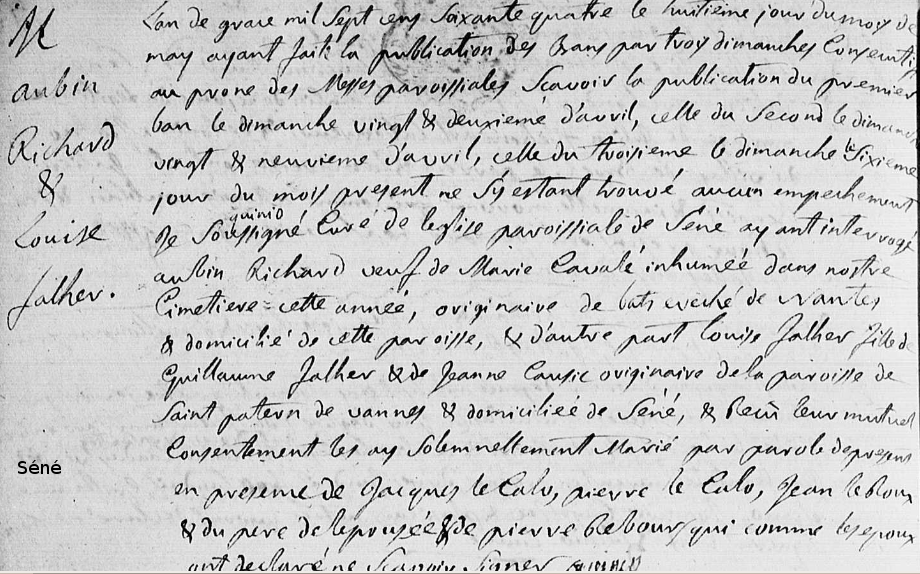 M
aubin
Richard
&
Louise
Jalher.
Séné
Lan de grace mil Sept cens Soixante quatre le huitième jour du moy de
may ayant faite la publication des Bans par troy dimanches Consecutifs
au prone des Messes paroissiales Scavoir la publication du premier
ban le dimanche vingt & deuxieme d'avril, celle du Second le dimanche
vingt & neuvieme d'avril, celle du troisieme le dimanche le Sixieme
jour du mois present ne s'y estant trouvé aucun empechement
quinio
Je Soussigné Curé de leglise paroissiale de Séné ayant interrogé
aubin Richard veuf de Marie Cavalé inhumée dans nostre
Cimetiere cette année, originaire de bats eveché de Nantes
& domicilié de cette paroisse, & d'autre part louise Jalher fille de
Guillaume Jalher & de Jeanne Causic originaire de la paroisse de
Saint patern de vannes & domiciliée de Séné, & Recu leur mutuel
Consentement les ay Solemnellement Marié par parole de present
en presence de Jacques le Calo, pierre le Calo, Jean le Roux
& du pere de lepousée & de pierre Rebours qui comme les epoux
ont declaré ne Scavoir Signer